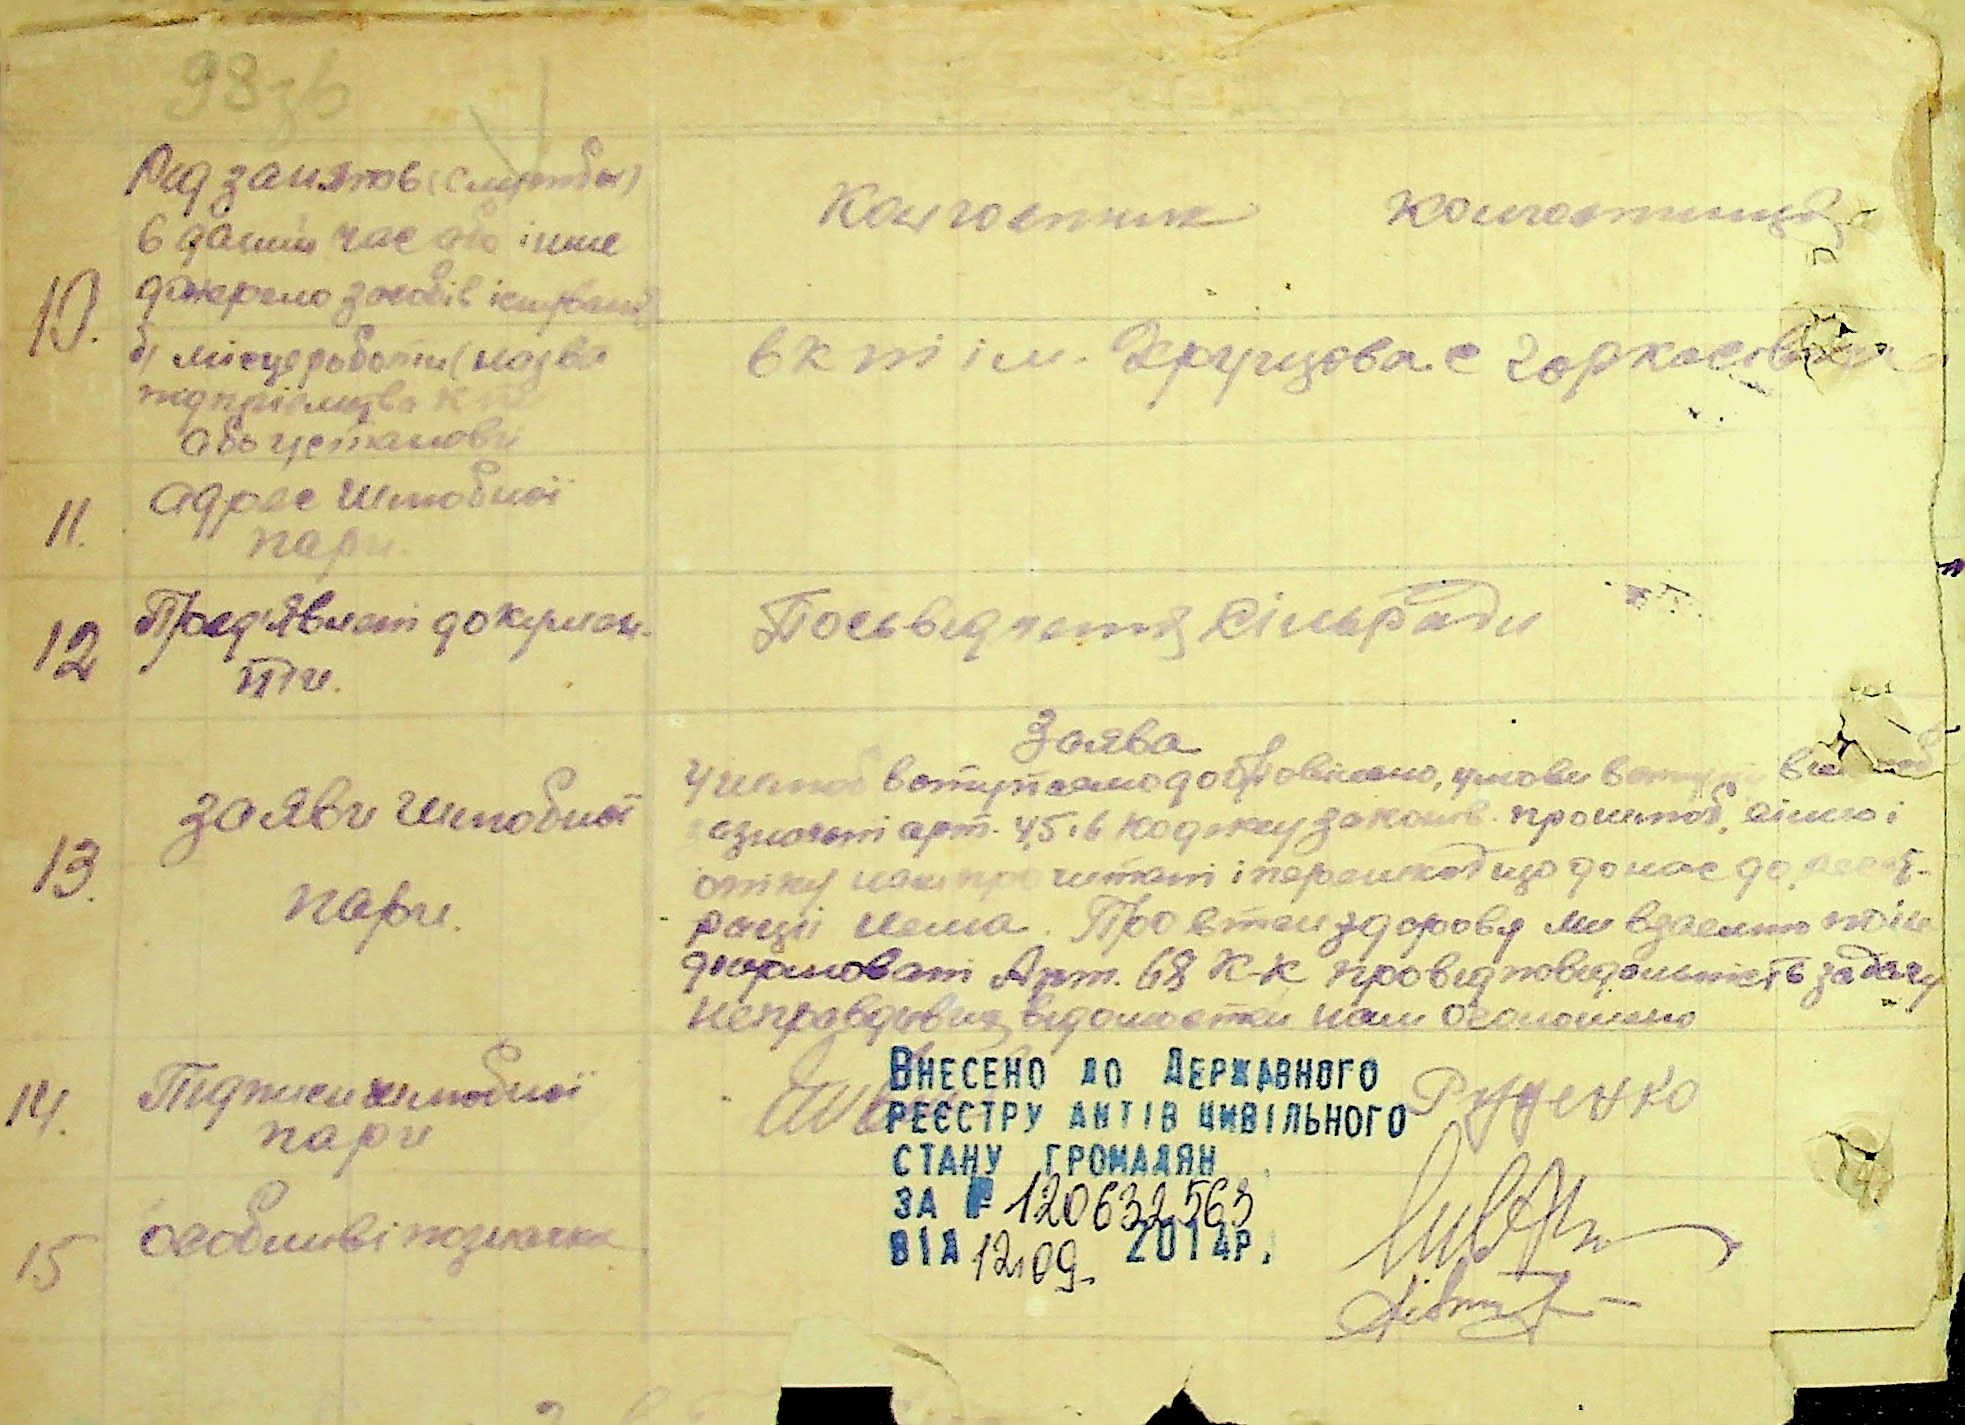 98зв
Рід занять (службы)
в даний час або інше
джерело засобів існуван
10.
б) місце роботи (назва
підприємства к
або установи
Колгоспник колгоспниця
в к т ім. Хрущова с
11. адрес шлюбної
пари.
12 Пред'явлені докумен-
ти.
Посьвідчення сільради
13. заяви шлюбної
пари.
Заява
У шлюб вступаємо добровільно, умови вступу в
арт. 4,5 і 6 кодексу законів про шлюб, сім'ю і
опіку нами прочитані і перешкод що до нас до
рації нема. Про стан здоровя ми взаємно поін
формовані Арт. 68 К-К про відповідальність за дачу
неправдивих відомостей нам оголошено
14. Підписи шлюбної
пари
Руденко
15 особливі позначки
ВНЕСЕНО ДО ДЕРЖАВНОГО
РЕЄСТРУ АКТІВ ЦИВІЛЬНОГО
СТАНУ ГРОМАДЯН
ЗА № 120632563
ВІД 12.09. 2014р.